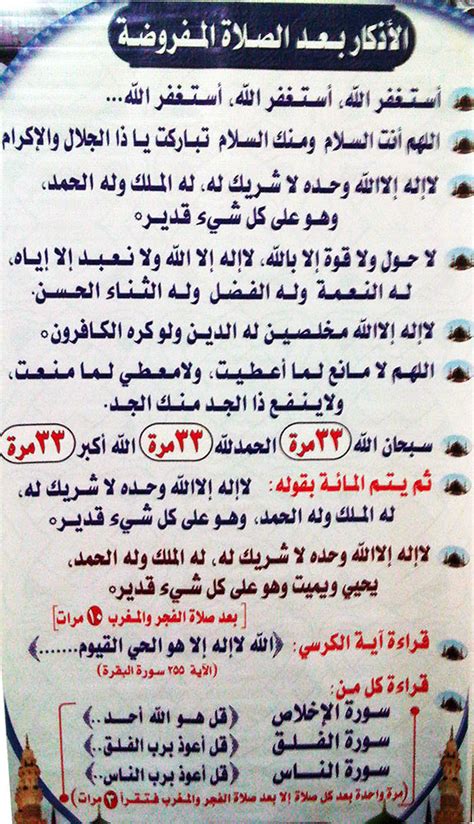 الأذكار بعد الصلاة المفروضة
أستغفر الله، أستغفر الله، أستغفر الله...
اللهم أنت السلام ومنك السلام تباركت يا ذا الجلال والإكرام
لاإله إلاالله وحده لا شريك له، له الملك وله الحمد،
وهو على كل شيء قدير.
لا حول ولا قوة إلا بالله، لاإله إلا الله ولا نعبد إلا إياه،
له النعمة وله الفضل وله الثناء الحسن.
لاإله إلاالله مخلصين له الدين ولو كره الكافرون.
اللهم لا مانع لما أعطيت، ولامعطي لما منعت،
ولاينفع ذا الجد منك الجد.
سبحان الله ٣٣ مرة الحمدلله ٣٣ مرة الله أكبر ٣٣ مرة
ثم يتم المائة بقوله: لاإله إلاالله وحده لا شريك له،
له الملك وله الحمد، وهو على كل شيء قدير.
لاإله إلاالله وحده لا شريك له، له الملك وله الحمد،
يحيي ويميت وهو على كل شيء قدير.
[بعد صلاة الفجر والمغرب ١٠ مرات]
قراءة آية الكرسي: ﴿الله لاإله إلا هو الحي القيوم.......﴾
(الآية ٢٥٥ سورة البقرة)
قراءة كل من:
سورة الإخلاص ﴿قل هو الله أحد..﴾
سورة الفلق ﴿قل أعوذ برب الفلق..﴾
سورة الناس ﴿قل أعوذ برب الناس..﴾
(مرة واحدة بعد كل صلاة إلا بعد صلاة الفجر والمغرب فتقرأ ٣ مرات)